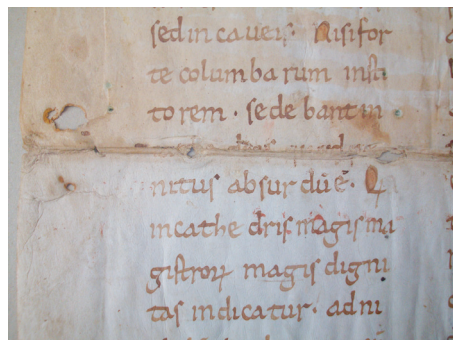 sed in caveis. Nisi for
te columbarum insti
torem. sedebant in
nitus absurdũe. Q
in cathedris magis ma
gistroꝝ magis digni
tas indicatur. ad ni